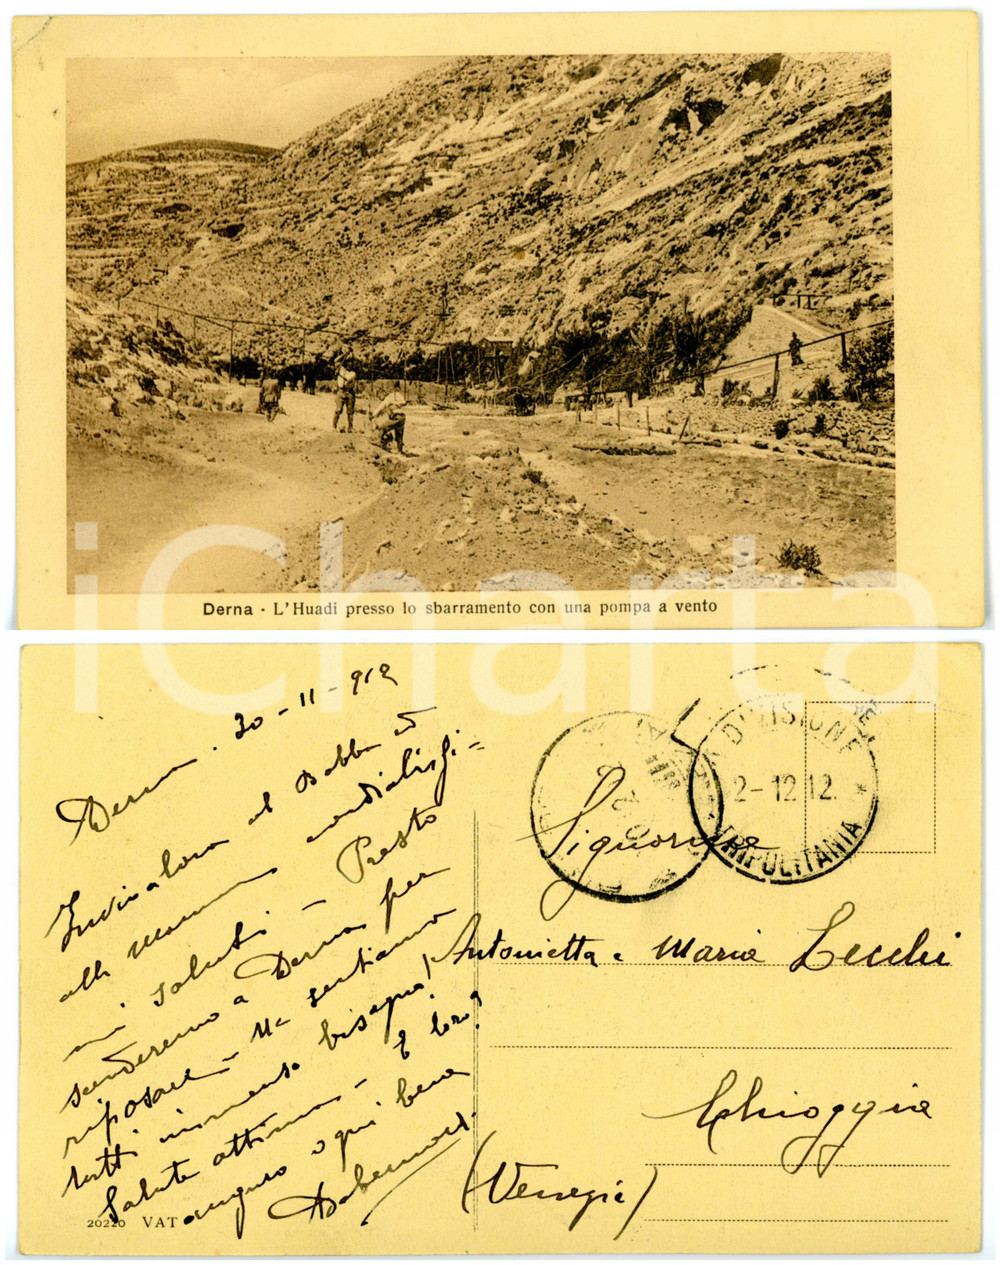 Derna - L'Huadi presso lo sbarramento con una pompa a vento
iCharta
Derna. 30-11-912
Invio a loro al Babbo ed
alla mamma cordialissi-
mi saluti - Presto
scenderemo a Derna per
riposarci - Ne sentiamo
tutti immenso bisogno!
Salute ottima - E loro?
auguro ogni bene
20220 VAT
DIVISIONE
2-12 12
TRIPOLITANIA
Signorine
Antonietta e Maria Lecchi
Chioggia
(Venezia)